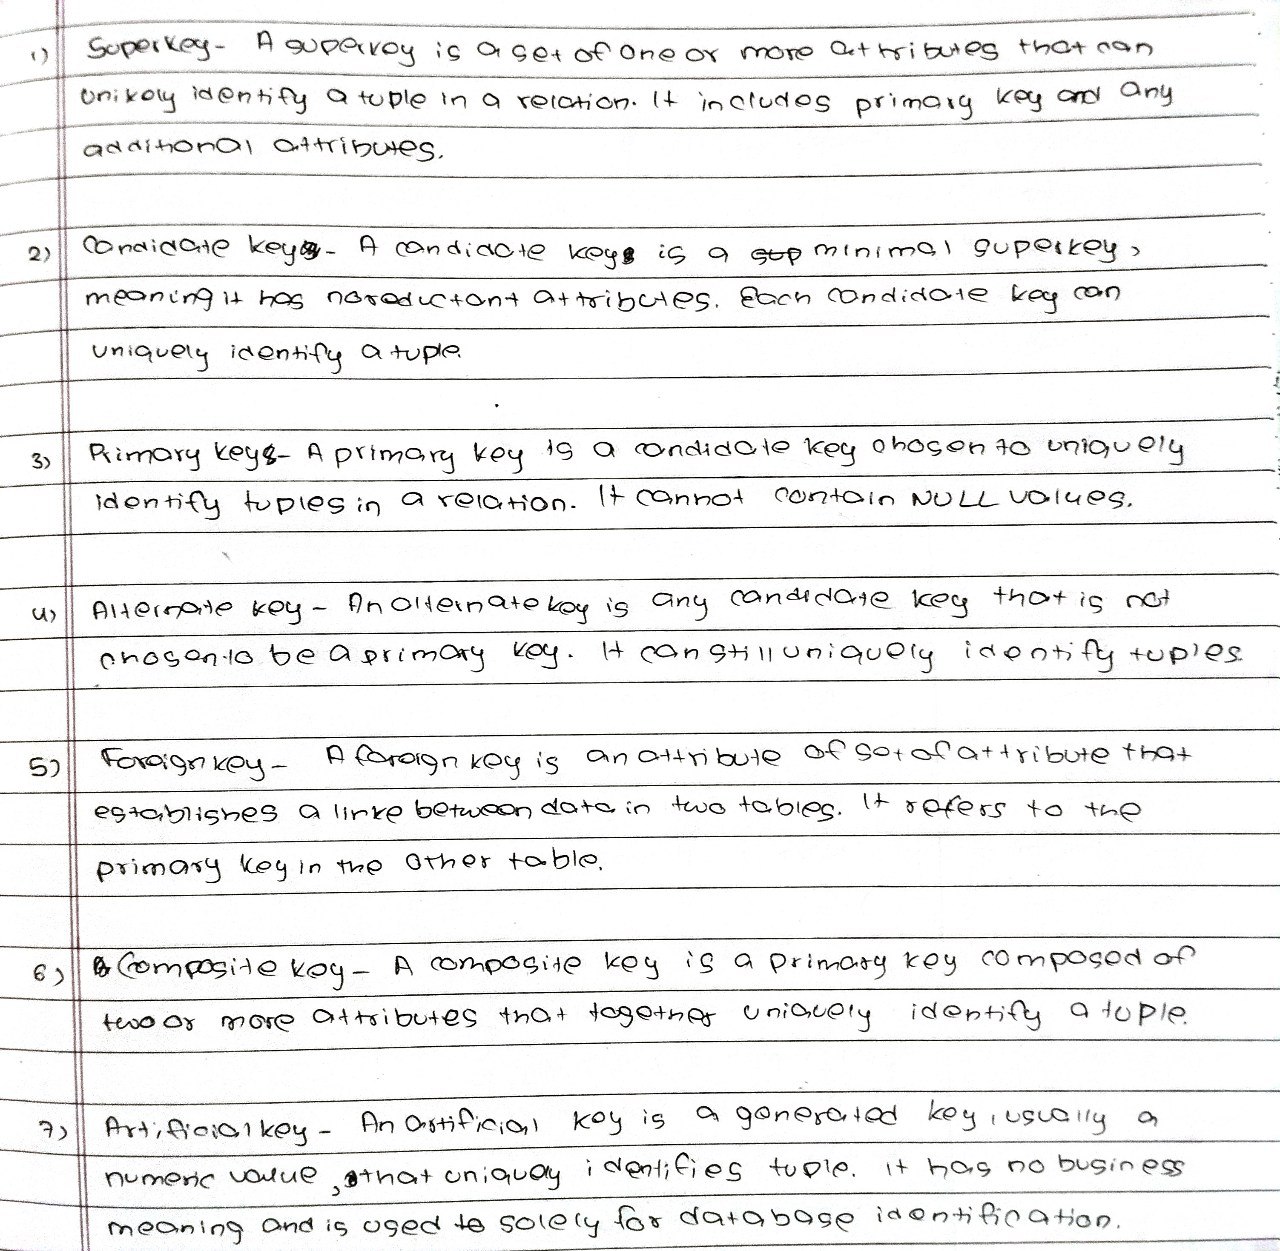 1) Superkey - A superkey is a set of one or more attributes that can
unikely identify a tuple in a relation. It includes primary key and any
additional attributes.
2) Candidate key - A candidate key is a minimal superkey,
meaning it has noreductant attributes. Each candidate key can
uniquely identify a tuple.
3) Primary keys - A primary key is a candidate key chosen to uniquely
identify tuples in a relation. It cannot contain NULL values.
4) Alternate key - An alternate key is any candidate key that is not
chosen to be a primary key. It can still uniquely identify tuples
5) Foreign key - A foreign key is an attribute of set of attribute that
establishes a linke between data in two tables. It refers to the
primary key in the other table.
6) Composite key - A composite key is a primary key composed of
two or more attributes that together uniquely identify a tuple.
7) Artificial key - An artificial key is a generated key, usually a
numeric value, that uniquely identifies tuple. it has no business
meaning and is used to solely for database identification.